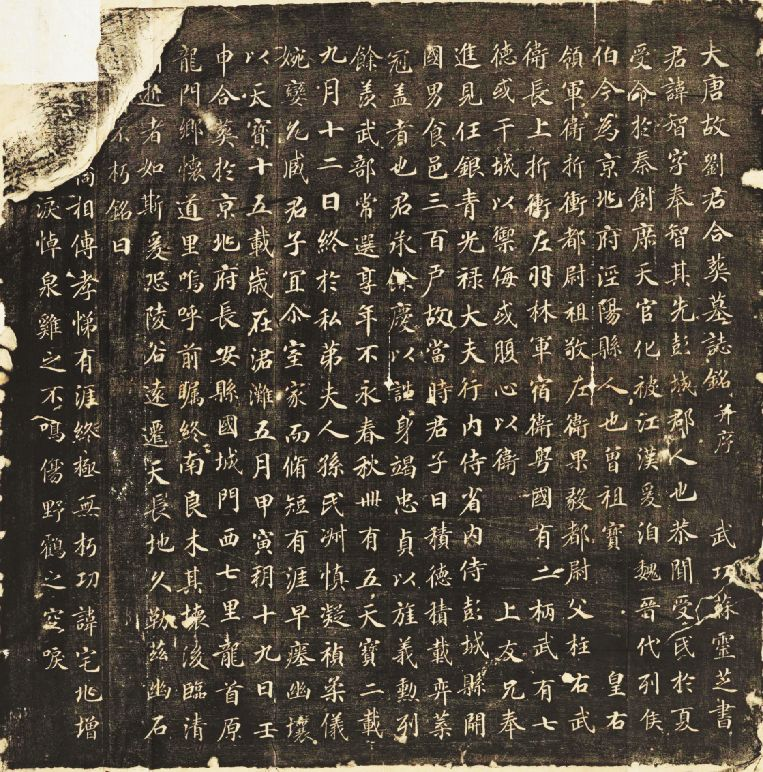 大唐故劉君合葬墓誌銘并序 武功蘇靈芝書
君諱智字奉智其先彭城郡人也恭聞受氏於夏
受命於秦創庶天官化被江漢爰洎魏晉代列侯
伯今為京兆府涇陽縣人也曾祖寶 皇右
領軍衛折衝都尉祖敬左衛果毅都尉父柱右武
衛長上折衝左羽林軍宿衛粵國有二柄武有七
德或干城以禦侮或腹心以衛 上友兄奉
進見任銀青光祿大夫行內侍省內侍彭城縣開
國男食邑三百戶故當時君子曰積德積載弈葉
冠蓋者也君承餘慶以謚身竭忠貞以旌義勳列
餘羨武部常選享年不永春秋卌有五天寶二載
九月十二日終於私弟夫人孫氏淑慎凝禎柔儀
婉孌允臧君子宜尒室家而脩短有涯早瘞幽壤
以天寶十五載歲在涒灘五月甲寅朔十九日壬
申合葬於京兆府長安縣國城門西七里龍首原
龍門鄉懷道里嗚呼前矚終南良木其壞後臨清
逝者如斯爰恐陵谷遠遷天長地久勒茲幽石
不朽銘曰
相傳孝悌有涯終極無朽功諱宅兆增
淚悼泉雞之不鳴傷野鶴之空唳